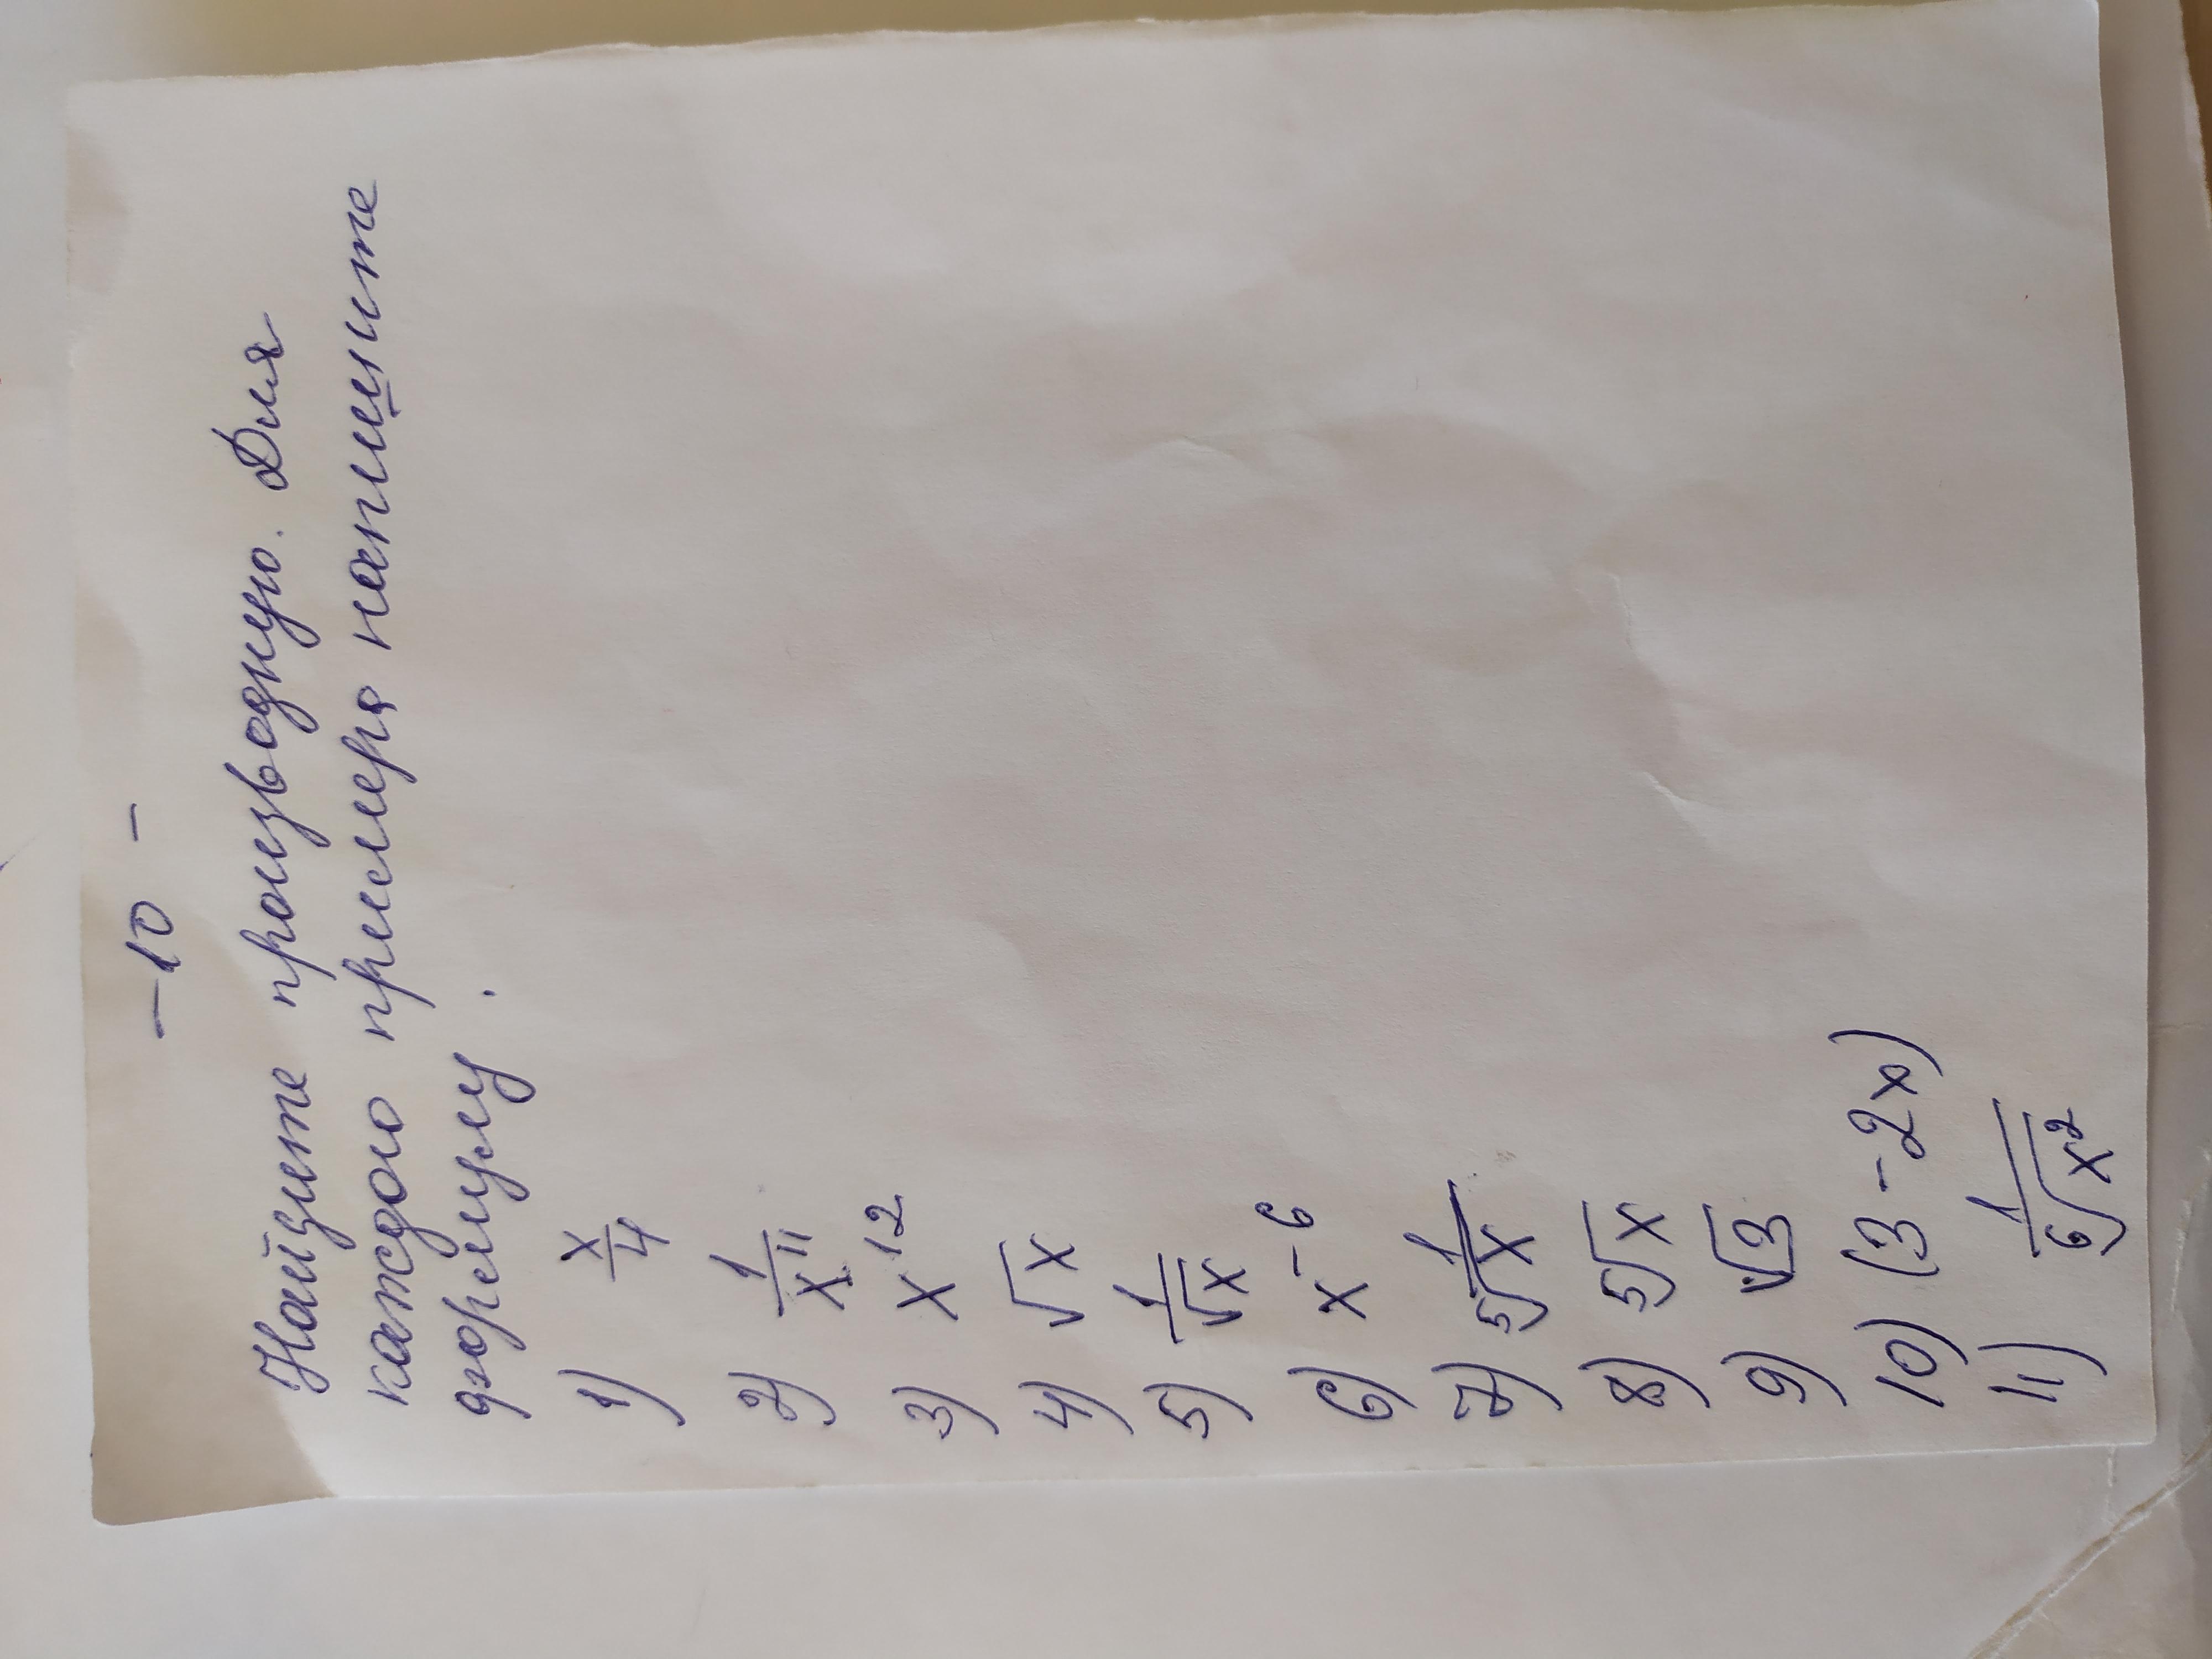 – 10 –
Найдите производную. Для
каждого примера напишите
формулу.
1) x/4
2) 1/x¹¹
3) x¹²
4) √x
5) 1/√x
6) x⁻⁶
7) 1/⁵√x
8) ⁵√x
9) √3
10) (3 - 2x)
11) 1/⁶√x²